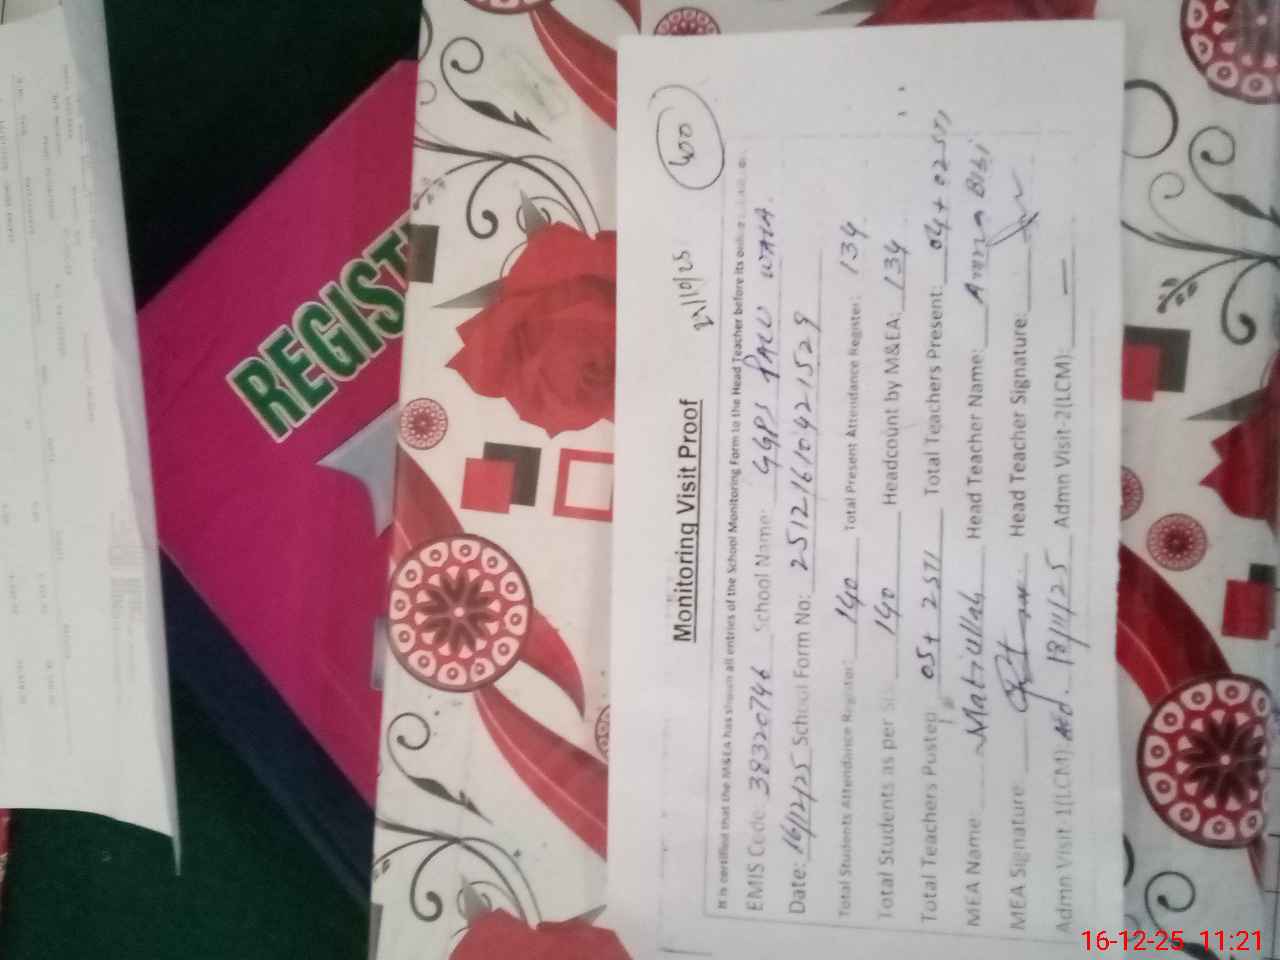 400
Monitoring Visit Proof
21/10/25
It is certified that the M&EA has shown all entries of the School Monitoring Form to the Head Teacher before its online
EMIS Code: 38320746 School Name: GGPS PALU WALA.
Date: 16/12/25 School Form No: 25121610421529
Total Students Attendance Register: 140 Total Present Attendance Register: 134
Total Students as per 140 Headcount by M&EA: 134
Total Teachers Posted 05+ 2STI Total Teachers Present: 04+02STI
MEA Name: Matiullah Head Teacher Name: Amna Bibi
MEA Signature: Head Teacher Signature:
Admn Visit-1(LCM): 18/11/25 Admn Visit-2(LCM): —
REGIST
16-12-25 11:21